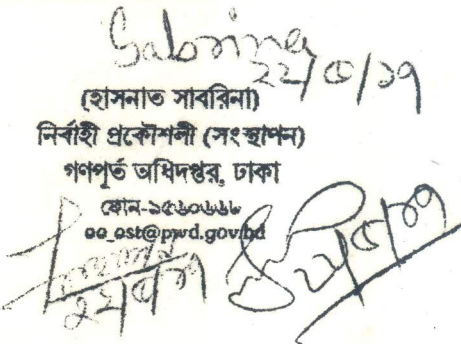 Sabrina
২২/৫/১৭
(হাসনাত সাবরিনা)
নির্বাহী প্রকৌশলী (সংস্থাপন)
গণপূর্ত অধিদপ্তর, ঢাকা
ফোন-৯৫৬০৬৬৮
ee_ost@pwd.gov.bd
২২/৫/১৭